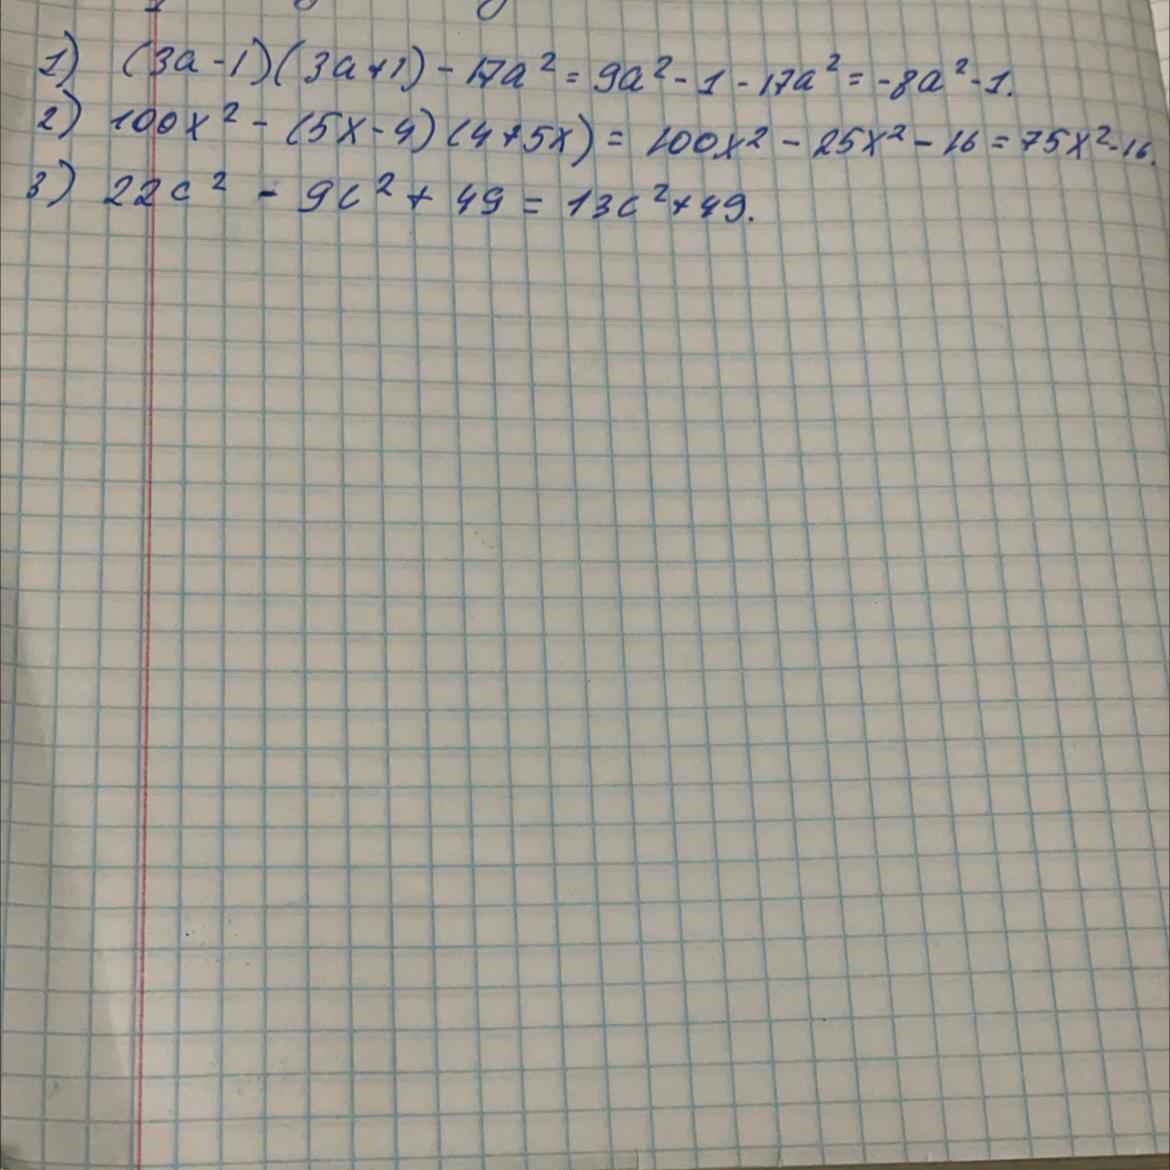 1) (3a-1)(3a+1) - 17a² = 9a² - 1 - 17a² = -8a² - 1.
2) 100x² - (5x-4)(4+5x) = 100x² - 25x² - 16 = 75x² - 16.
3) 22c² - 9c² + 49 = 13c² + 49.